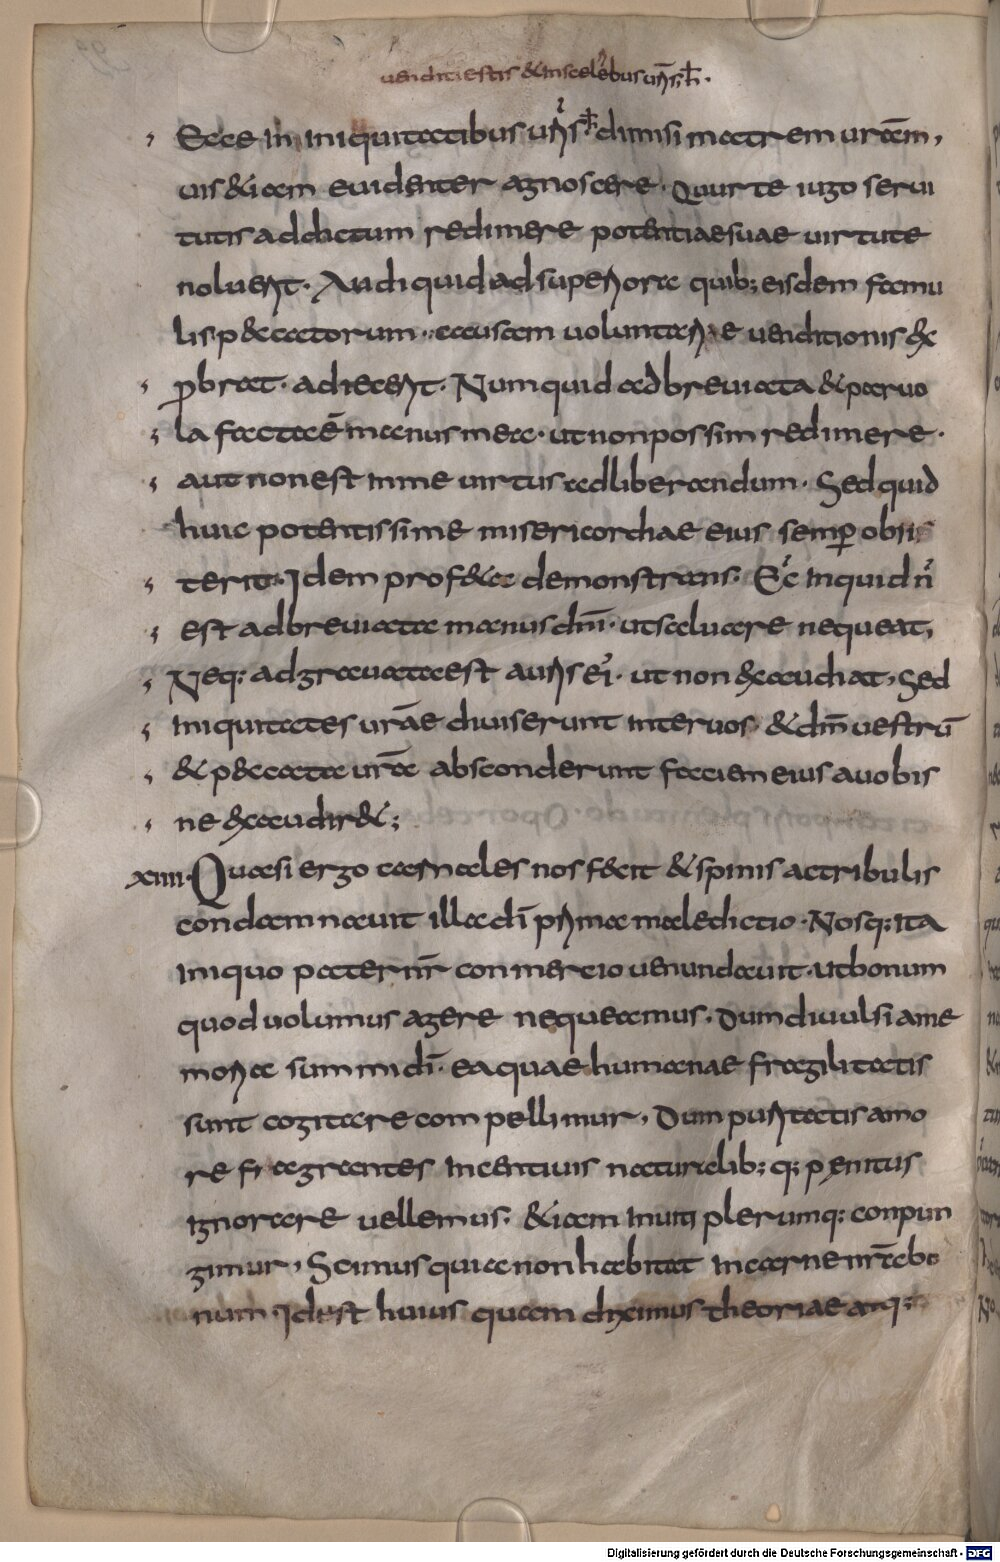 uenditi estis & in sceleribus ur̄is·ħ·
Ecce in iniquitatibus ur̄is ħ dimisi matrem urām,
uis & iam euidenter agnoscere· Qur te iugo serui
tutis addictum redimere potentiae suae uirtute
noluerit· Audi quid ad superiora quib; eisdem famu
lis peccatorum· ac causam uoluntariae uenditionis ex
probrat· adiecerit· Numquid adbreuiata & paruo
la facta ē manus mea· ut non possim redimere·
aut non est in me uirtus ad liberandum· Sed quid
huic potentissime misericordiae eius semp obsis
terit· Idem prof&a demonstrans· Ec inquid n̄
est adbreuiata manus dn̄i· ut saluare nequeat,
Neq: adgrauata est auris ei· ut non exaudiat, Sed
iniquitates urāe diuiserunt inter uos· & dm̄ uestrū
& peccata urā absconderunt faciem eius a uobis
ne exaudir&;
xiiii· Quasi ergo carnales nos fecit & spinis ac tribulis
condamnauit illa dī prima maledictio· Nosq: ita
iniquo pater nr̄ conmercio uenundauit· ut bonum
quod uolumus agere nequeamus· Dum diuulsi a me
moria summi dī· ea quae humanae fragilitatis
sunt cogitare compellimur, Dum puritatis amo
re flagrantes incentiuis naturalib; q; penitus
ignorare uellemus· &iam inuiti plerumq: conpun
gimur, Scimus quia non habitat in carne nrā bo
num· Id est huius quam diximus theoriae atq;
Digitalisierung gefördert durch die Deutsche Forschungsgemeinschaft - DFG